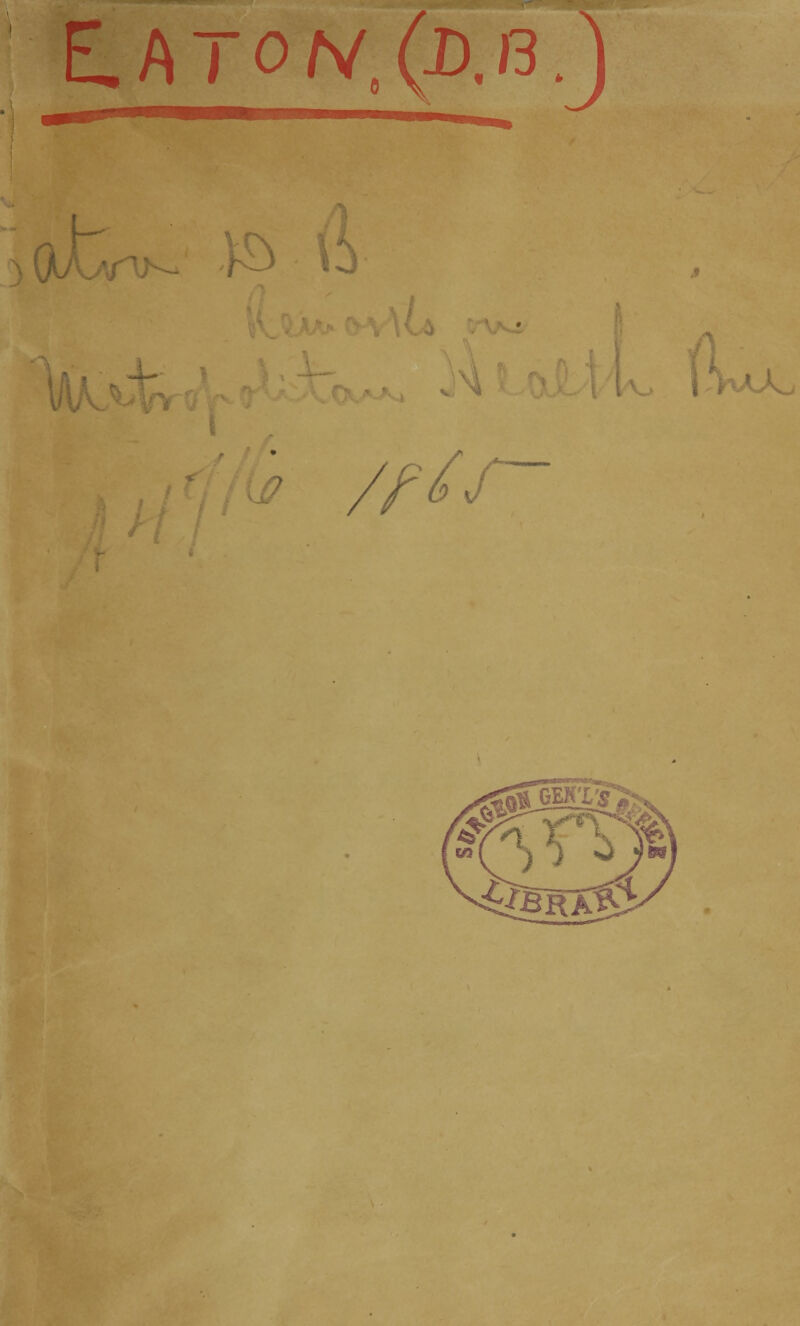 EATON, (D.B.)
Eaton D B
Remarks on
Metropolitan Health Bill
1865
SURGEON GEN'L'S OFFICE
353
LIBRARY